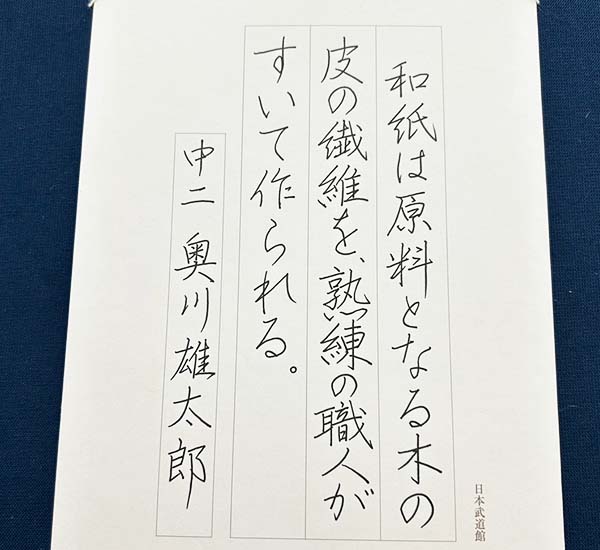 和紙は原料となる木の
皮の繊維を、熟練の職人が
すいて作られる。
中二 奥川雄太郎
日本武道館